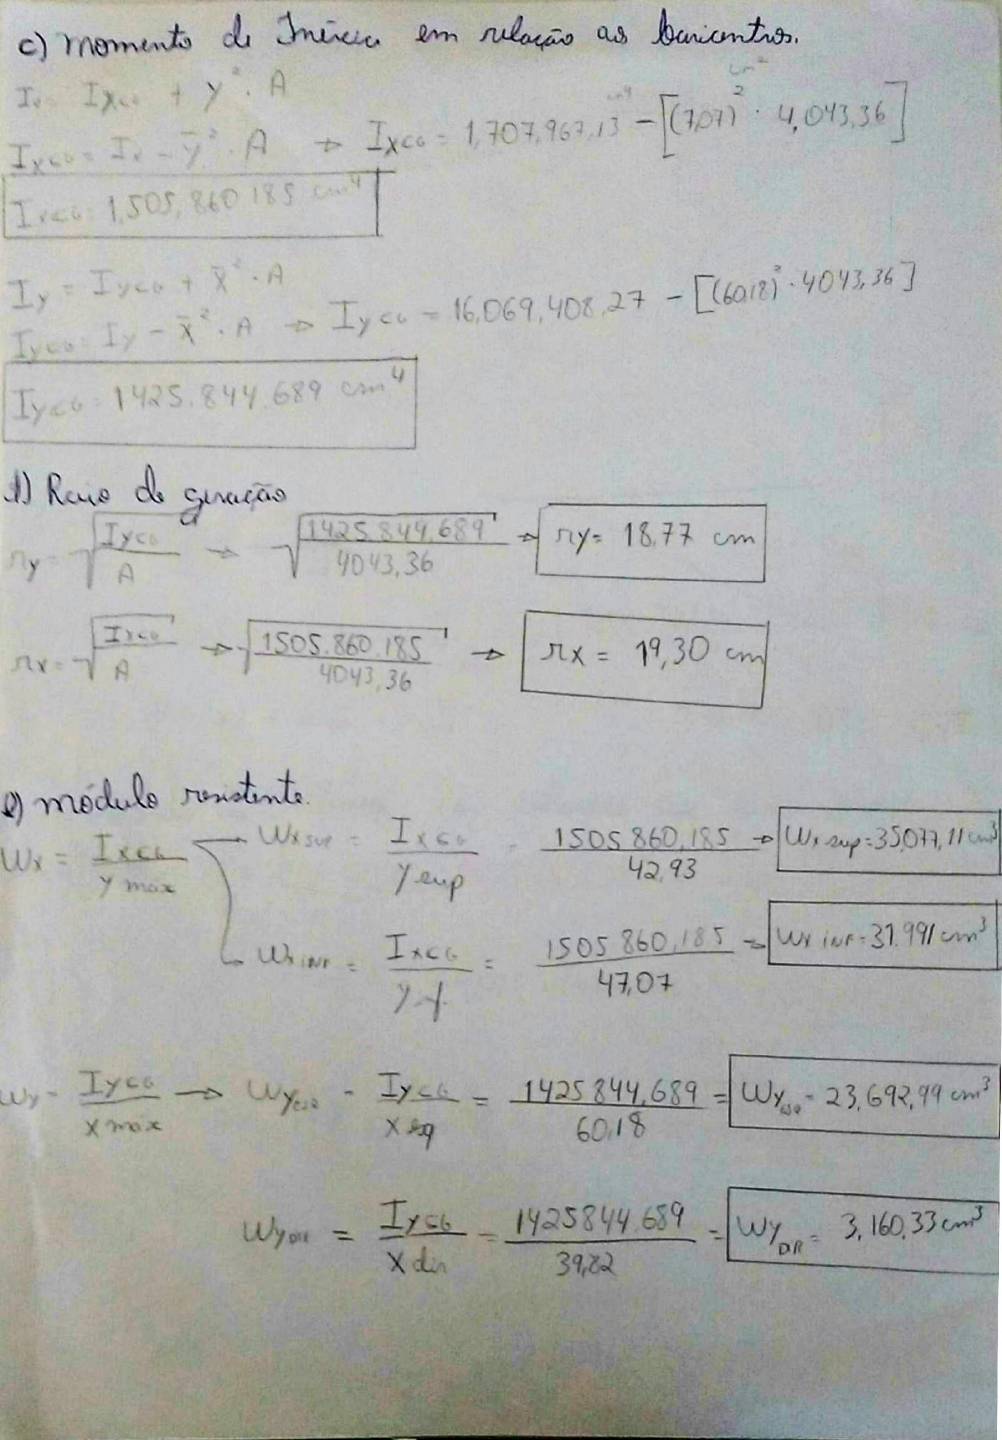 c) momento de Inércia em relação as baricentros.
Ix = Ixcg + y² · A
cm²
Ixcg = Ix - ȳ² · A → Ixcg = 1,707,967,13 cm⁴ - [(7,07)² · 4,043,36]
Ixcg = 1,505,860 185 cm⁴
Iy = Iycg + x̄² · A
Iycg = Iy - x̄² · A → Iycg = 16,069,408,27 - [(60,18)² · 4043,36]
Iycg = 1425.844.689 cm⁴
d) Raio de giração
ry = √(Iycg / A) → √(1425.844,689 / 4043,36) → ry = 18.77 cm
rx = √(Ixcg / A) → √(1505.860,185 / 4043,36) → rx = 19,30 cm
e) módulo resistente.
Wx = Ixcg / y máx → Wx sup = Ixcg / y sup = 1505 860,185 / 42,93 → Wx sup = 35077,11 cm³
Wx inf = Ixcg / y = 1505 860,185 / 47,07 = Wx inf = 31.991 cm³
Wy = Iycg / x máx → Wy esq = Iycg / x esq = 1425 844,689 / 60,18 = Wy esq = 23,692,99 cm³
Wy DIR = Iycg / x dir = 1425844.689 / 39,82 = Wy DIR = 3,160,33 cm³